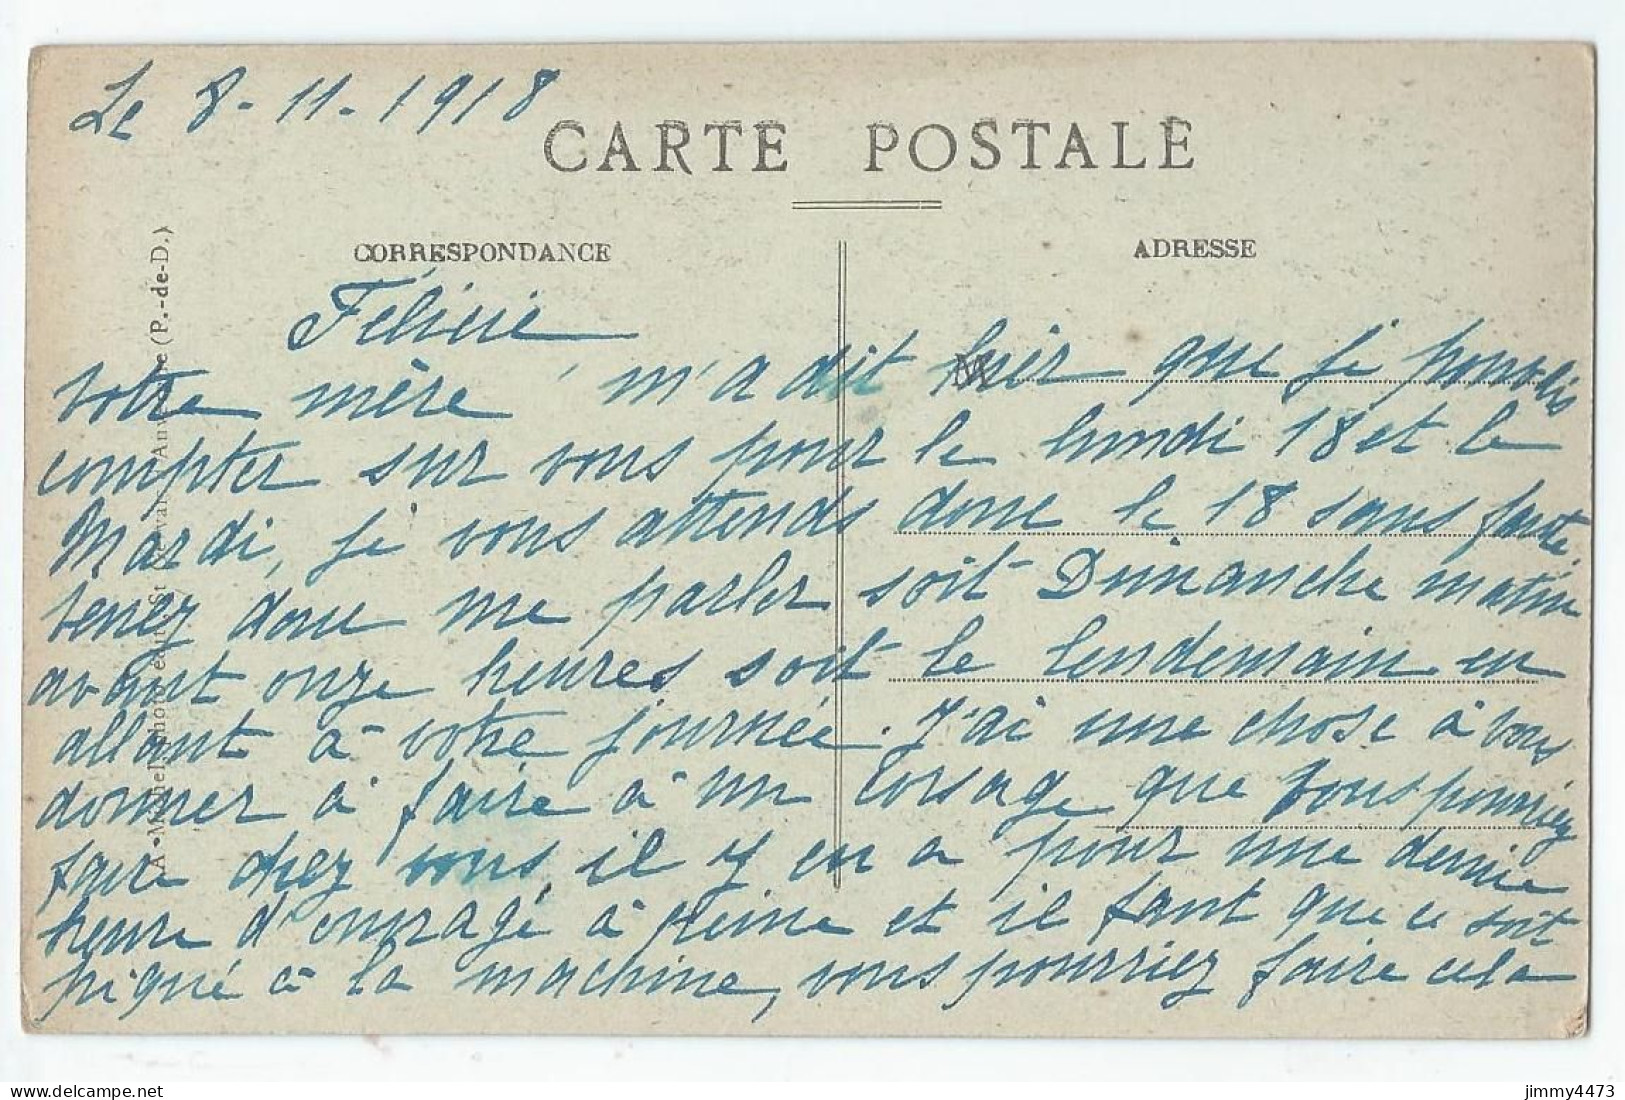 Le 8-11-1918
CARTE POSTALE
CORRESPONDANCE
ADRESSE
Félicie
votre mère m'a dit hier que je pouvais
compter sur vous pour le lundi 18 et le
Mardi, je vous attends donc le 18 sans faute
venez donc me parler soit Dimanche matin
avant onze heures soit le lendemain en
allant à votre journée. J'ai une chose à vous
donner à faire à un corsage que vous pourriez
faire chez vous, il y en a pour une demie
heure d'ouvrage à peine et il faut que ce soit
piqué à la machine, vous pourriez faire cela
(P.-de-D.)
jimmy4473